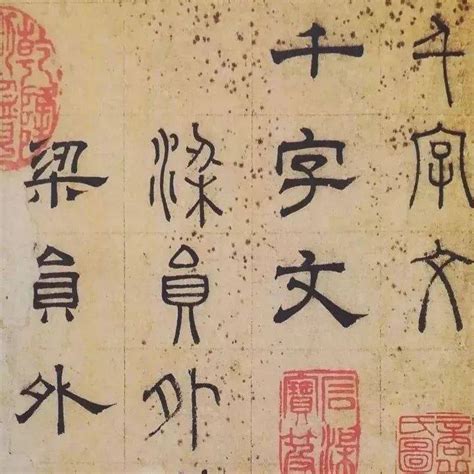 千字文
千字文
梁員外
梁員外
乾隆